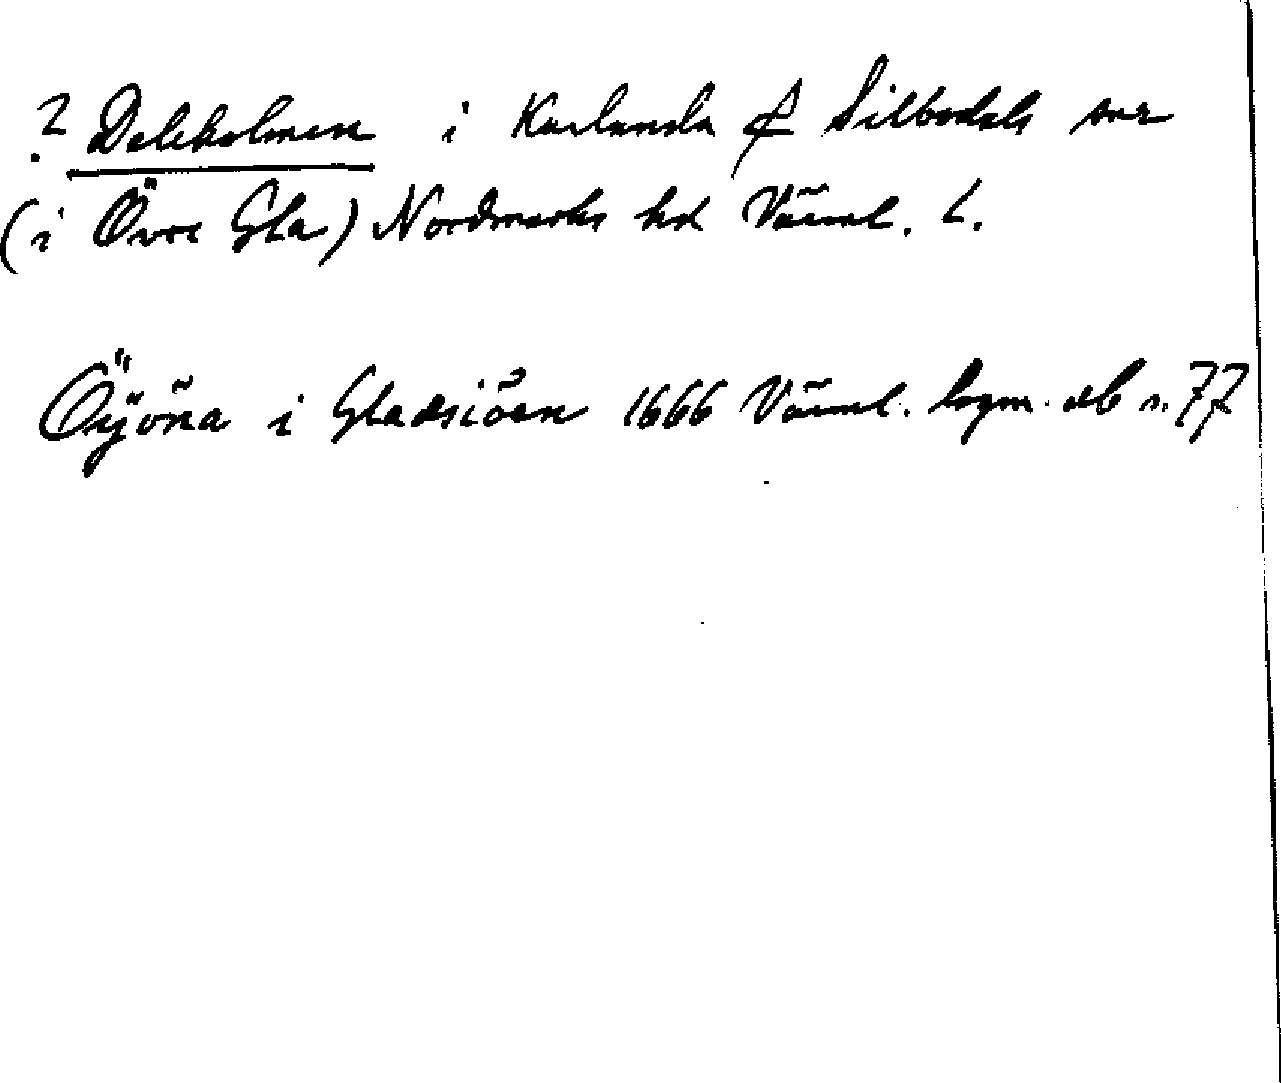 ? Daleholmen i Karlanda & Silbodals snr
(i Övre Gla) Nordmarks hd Värml. L.
Öÿöna i Gladsiöen 1666 Värml. lagm. db n. 77